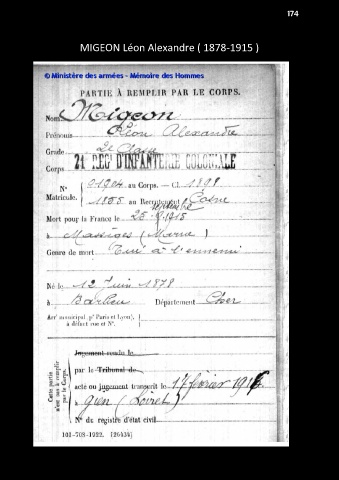 174
MIGEON Léon Alexandre ( 1878-1915 )
© Ministère des armées - Mémoire des Hommes
PARTIE À REMPLIR PAR LE CORPS.
Nom Migeon
Prénoms Léon Alexandre
Grade 2e Classe
Corps REG D'INFANTERIE COLONIALE
N° 01904 au Corps. — Cl. 1898
Matricule. 1855 au Recrutement Cosne
septembre
Mort pour la France le 25 - 9 - 1915
à Massiges (Marne)
Genre de mort Tué à l'ennemi
Né le 12 Juin 1878
à Barlieu Département Cher
Arr' municipal (p' Paris et Lyon),
à défaut rue et N°.
Cette partie
n'est pas à remplir
par le Corps.
Jugement rendu le
par le Tribunal de
acte ou jugement transcrit le 17 février 191
à Gien (Loiret)
N° du registre d'état civil
101-708-1922. [26434]